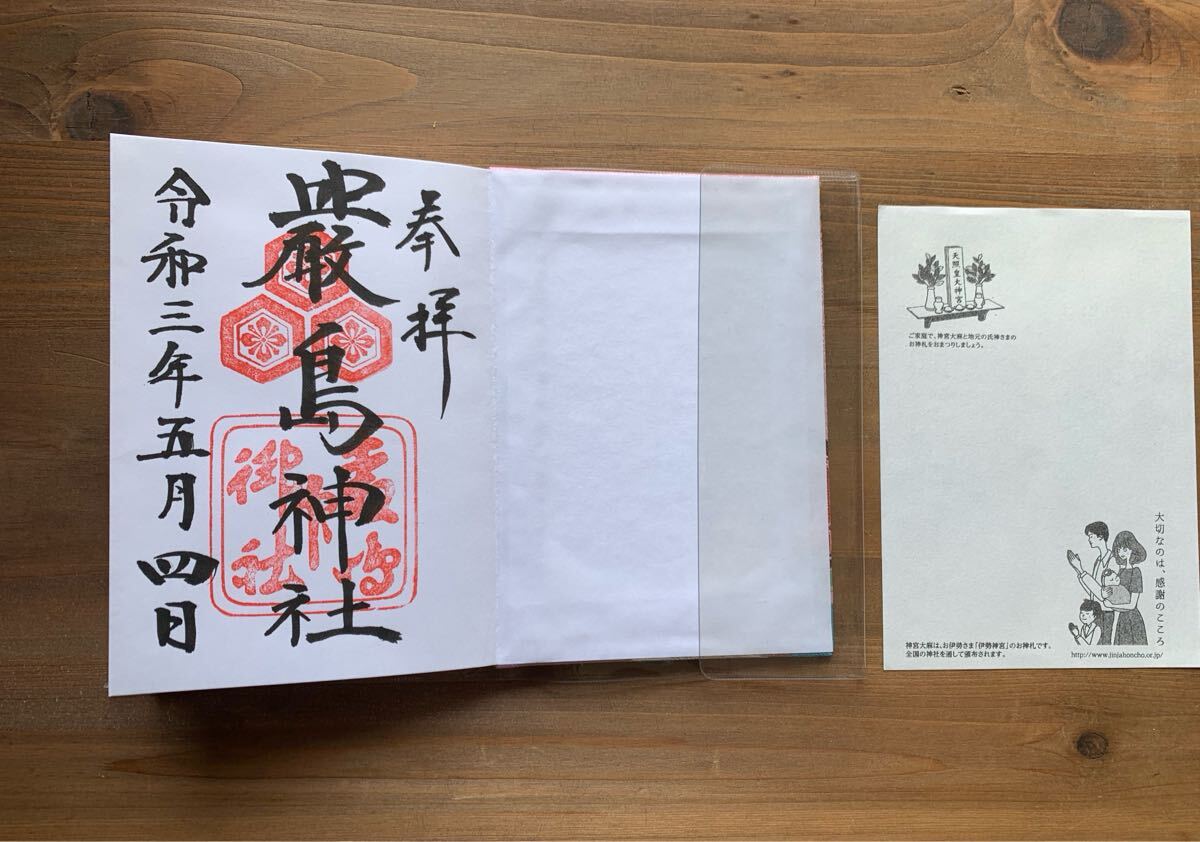 奉拝
嚴島神社
令和三年五月四日
天照皇大神宮
ご家庭で、神宮大麻と地元の氏神さまの
お神札をおまつりしましょう。
大切なのは、感謝のこころ
神宮大麻は、お伊勢さま「伊勢神宮」のお神札です。
全国の神社を通して頒布されます。
http://www.jinjahoncho.or.jp/